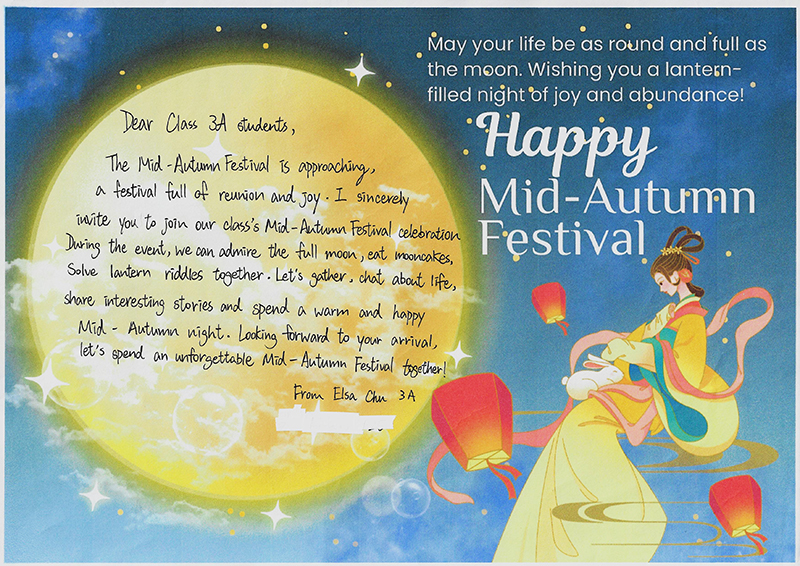 May your life be as round and full as
the moon. Wishing you a lantern-
filled night of joy and abundance!
Happy
Mid-Autumn
Festival
Dear Class 3A students,
The Mid-Autumn Festival is approaching,
a festival full of reunion and joy. I sincerely
invite you to join our class's Mid-Autumn Festival celebration
During the event, we can admire the full moon, eat mooncakes,
Solve lantern riddles together. Let's gather, chat about life,
share interesting stories and spend a warm and happy
Mid-Autumn night. Looking forward to your arrival,
let's spend an unforgettable Mid-Autumn Festival together!
From Elsa Chu 3A